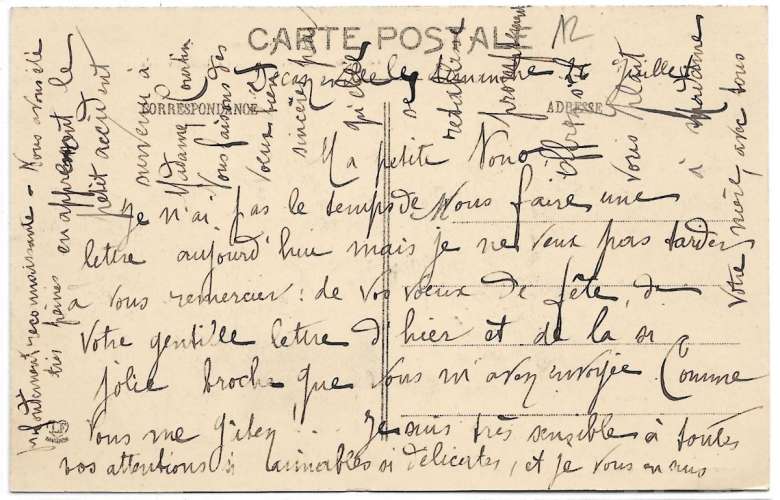 CARTE POSTALE
12
CORRESPONDANCE
ADRESSE
le dimanche Juillet
Ma petite Nono
Je n'ai pas le temps de vous faire une
lettre aujourd'hui mais je ne veux pas tarder
a vous remercier : de vos voeux de fête, de
votre gentille lettre d'hier et de la si
jolie broche que vous m'avez envoyée. Comme
vous me gâtez !.. Je suis très sensible à toutes
vos attentions si aimables si délicates, et je vous en suis
infiniment reconnaissante - Nous avons été
très peinés en apprenant le
petit accident
survenu à
Madame
Nous faisons des
voeux
sincères pour
qu'elle
se
rétablisse
promptement
s'il
vous plaît
à Madame
votre mère, avec tous